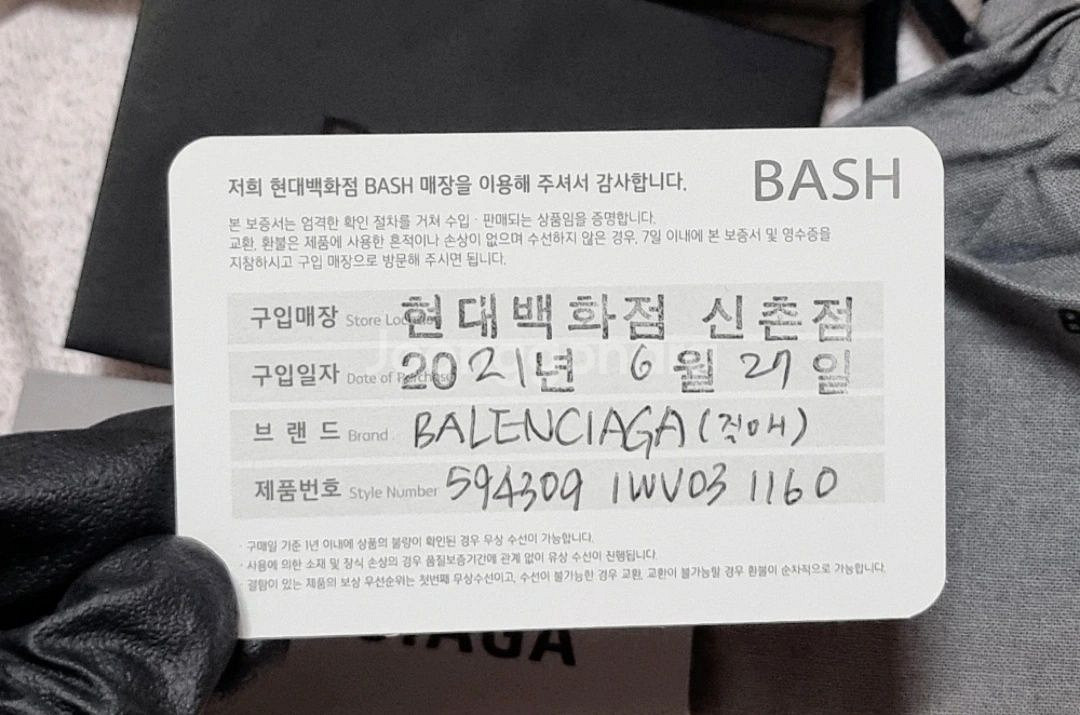 BASH
저희 현대백화점 BASH 매장을 이용해 주셔서 감사합니다.
본 보증서는 엄격한 확인 절차를 거쳐 수입 · 판매되는 상품임을 증명합니다.
교환, 환불은 제품에 사용한 흔적이나 손상이 없으며 수선하지 않은 경우, 7일 이내에 본 보증서 및 영수증을
지참하시고 구입 매장으로 방문해 주시면 됩니다.
구입매장 Store 현대백화점 신촌점
구입일자 Date of Purchase 2021년 6월 27일
브랜드 Brand BALENCIAGA
제품번호 Style Number 594309 1WV03 1160
· 구매일 기준 1년 이내에 상품의 불량이 확인된 경우 무상 수선이 가능합니다.
· 사용에 의한 소재 및 장식 손상의 경우 품질보증기간에 관계 없이 유상 수선이 진행됩니다.
· 결함이 있는 제품의 보상 우선순위는 첫번째 무상수선이고, 수선이 불가능한 경우 교환, 교환이 불가능할 경우 환불이 순차적으로 가능합니다.